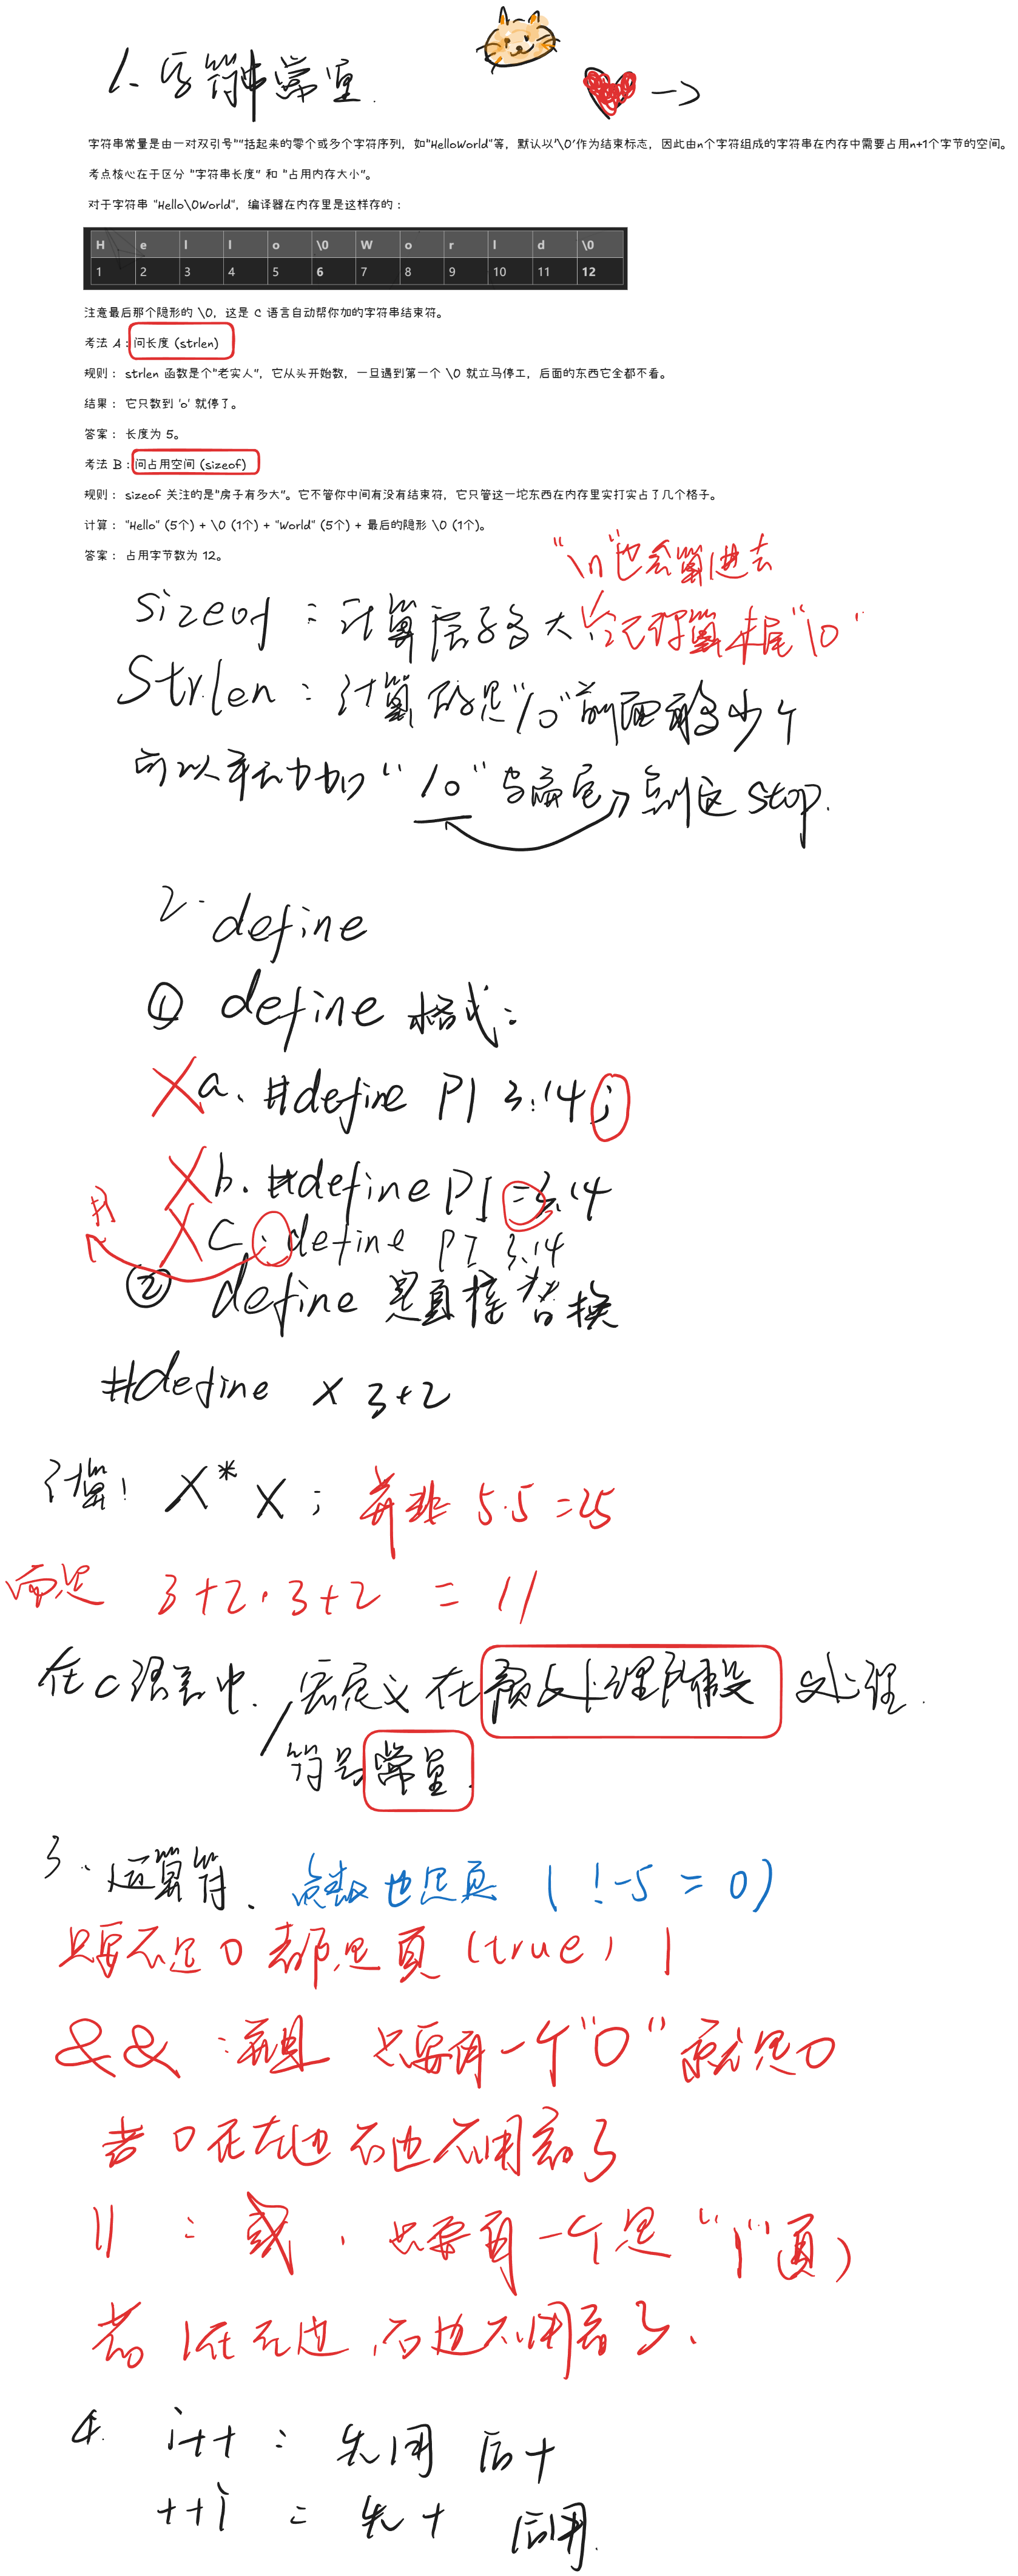 1、字符串常量.
->
字符串常量是由一对双引号""括起来的零个或多个字符序列，如"HelloWorld"等，默认以'\0'作为结束标志，因此由n个字符组成的字符串在内存中需要占用n+1个字节的空间。
考点核心在于区分 "字符串长度" 和 "占用内存大小"。
对于字符串 "Hello\0World"，编译器在内存里是这样存的：
H e l l o \0 W o r l d \0
1 2 3 4 5 6 7 8 9 10 11 12
注意最后那个隐形的 \0，这是 C 语言自动帮你加的字符串结束符。
考法 A：问长度 (strlen)
规则： strlen 函数是个"老实人"，它从头开始数，一旦遇到第一个 \0 就立马停工，后面的东西它全都不看。
结果： 它只数到 'o' 就停了。
答案： 长度为 5。
考法 B：问占用空间 (sizeof)
规则： sizeof 关注的是"房子有多大"。它不管你中间有没有结束符，它只管这一坨东西在内存里实打实占了几个格子。
计算： "Hello" (5个) + \0 (1个) + "World" (5个) + 最后的隐形 \0 (1个)。
答案： 占用字节数为 12。
"\n"也会算进去
sizeof：计算房子多大，算末尾"\0"
Strlen：计算的是"\0"前面有多少个
可以手动加"\0"当扁尾，到这stop.
2. define
① define 格式：
X a、#define PI 3.14;
X b. #define PI =3.14
# X C. define PI 3.14
② define 是直接替换
#define x 3+2
计算！ X*X； 并非 5·5=25
而是 3+2·3+2 = 11
在C语言中，宏定义在预处理阶段处理.
符号常量.
3、运算符、负数也是真 ( !-5 = 0)
只要不是0都是真（true）1
&&：并且 只要有一个"0"就是0
若0在左边右边不用看了
||：或，只要有一个是"1"（真）
若1在左边，右边不用看了、
4. i++：先用 后+
++i：先+ 后用.